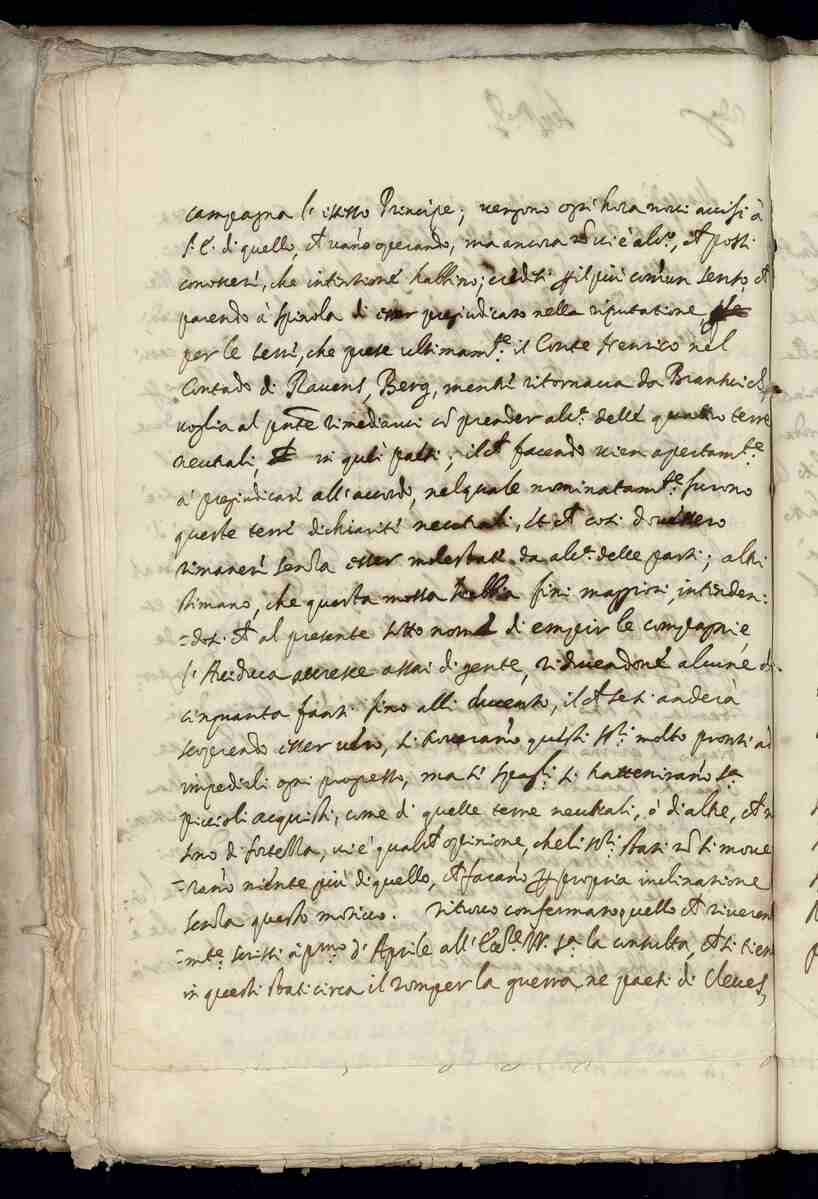 campagna l'istesso Principe; vengono ogni hora novi avvisi à
S. E. di quello, ch vano operando, ma ancora nō vi è alcō, ch possi
conoscersi, che intentione habbino; credesi ꝑ il più comun senso, ch
parendo à Spinola di esser pregiudicato nella riputatione,
per le terre, che prese ultimamte il Conte Henrico nel
Contado di Ravens, Berg, mentre ritornava da Branswich,
voglia al pnte rimediarvi cō prender alc.ª delle quattro terre
neutrali, in quei paesi; il ch facendo vien apertamte
à pregiudicare all'accordo, nel quale nominatamte furono
queste terre dichiarite neutrali, et ch così dovessero
rimanere senza esser molestate da alc.ª delle parti; altri
stimano, che questa mossa habbia fini maggiori, intenden:
=dosi ch al presente sotto nome di empir le compagnie,
l'Arciduca accresce assai di gente, riducendone alcune di
cinquanta fanti fino alli ducento, il ch se si anderà
scoprendo esser vero, si troverano questi Sri molto pronti ad
impedirli ogni progresso, ma se Spagli si hatteniranò
piccioli acquisti, come di quelle terre neutrali, ò di altre, ch n
sino di fortezza, vi è qualch opinione, che li Sri Stati nō si move
=rano niente più di quello, ch facano ꝑ propria inclinatione
senza questo motivo. ritorno confermare quello ch riveren
=mte scrissi à pmo d'Aprile all' Ecc.ze VV. la consulta, ch si tien
in questi Stati circa il romper la guerra ne paesi di Cleves,